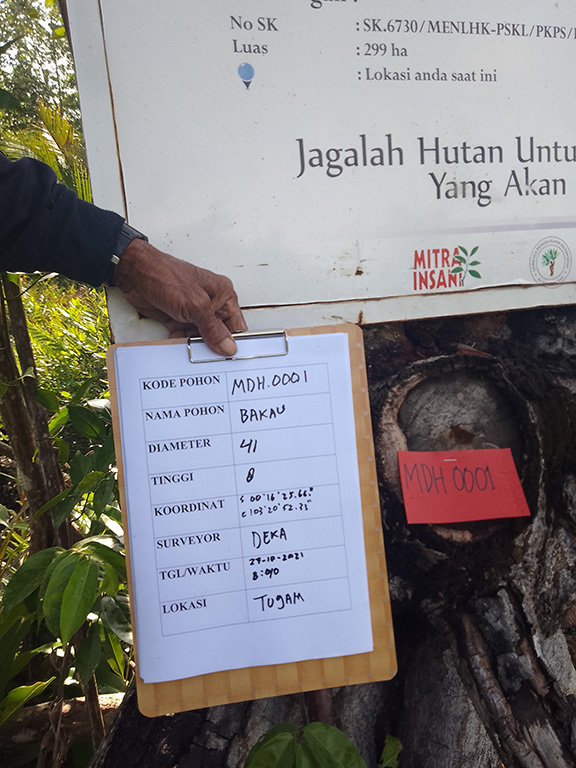 No SK : SK.6730/MENLHK-PSKL/PKPS/
Luas : 299 ha
: Lokasi anda saat ini
Jagalah Hutan Untu
Yang Akan
MITRA
INSANI
KODE POHON MDH.0001
NAMA POHON BAKAU
DIAMETER 41
TINGGI 8
KOORDINAT S 00°16'25.66"
E 103°20'52.35"
SURVEYOR DEKA
TGL/WAKTU 27-10-2021
8:00
LOKASI TUGAM
MDH 0001